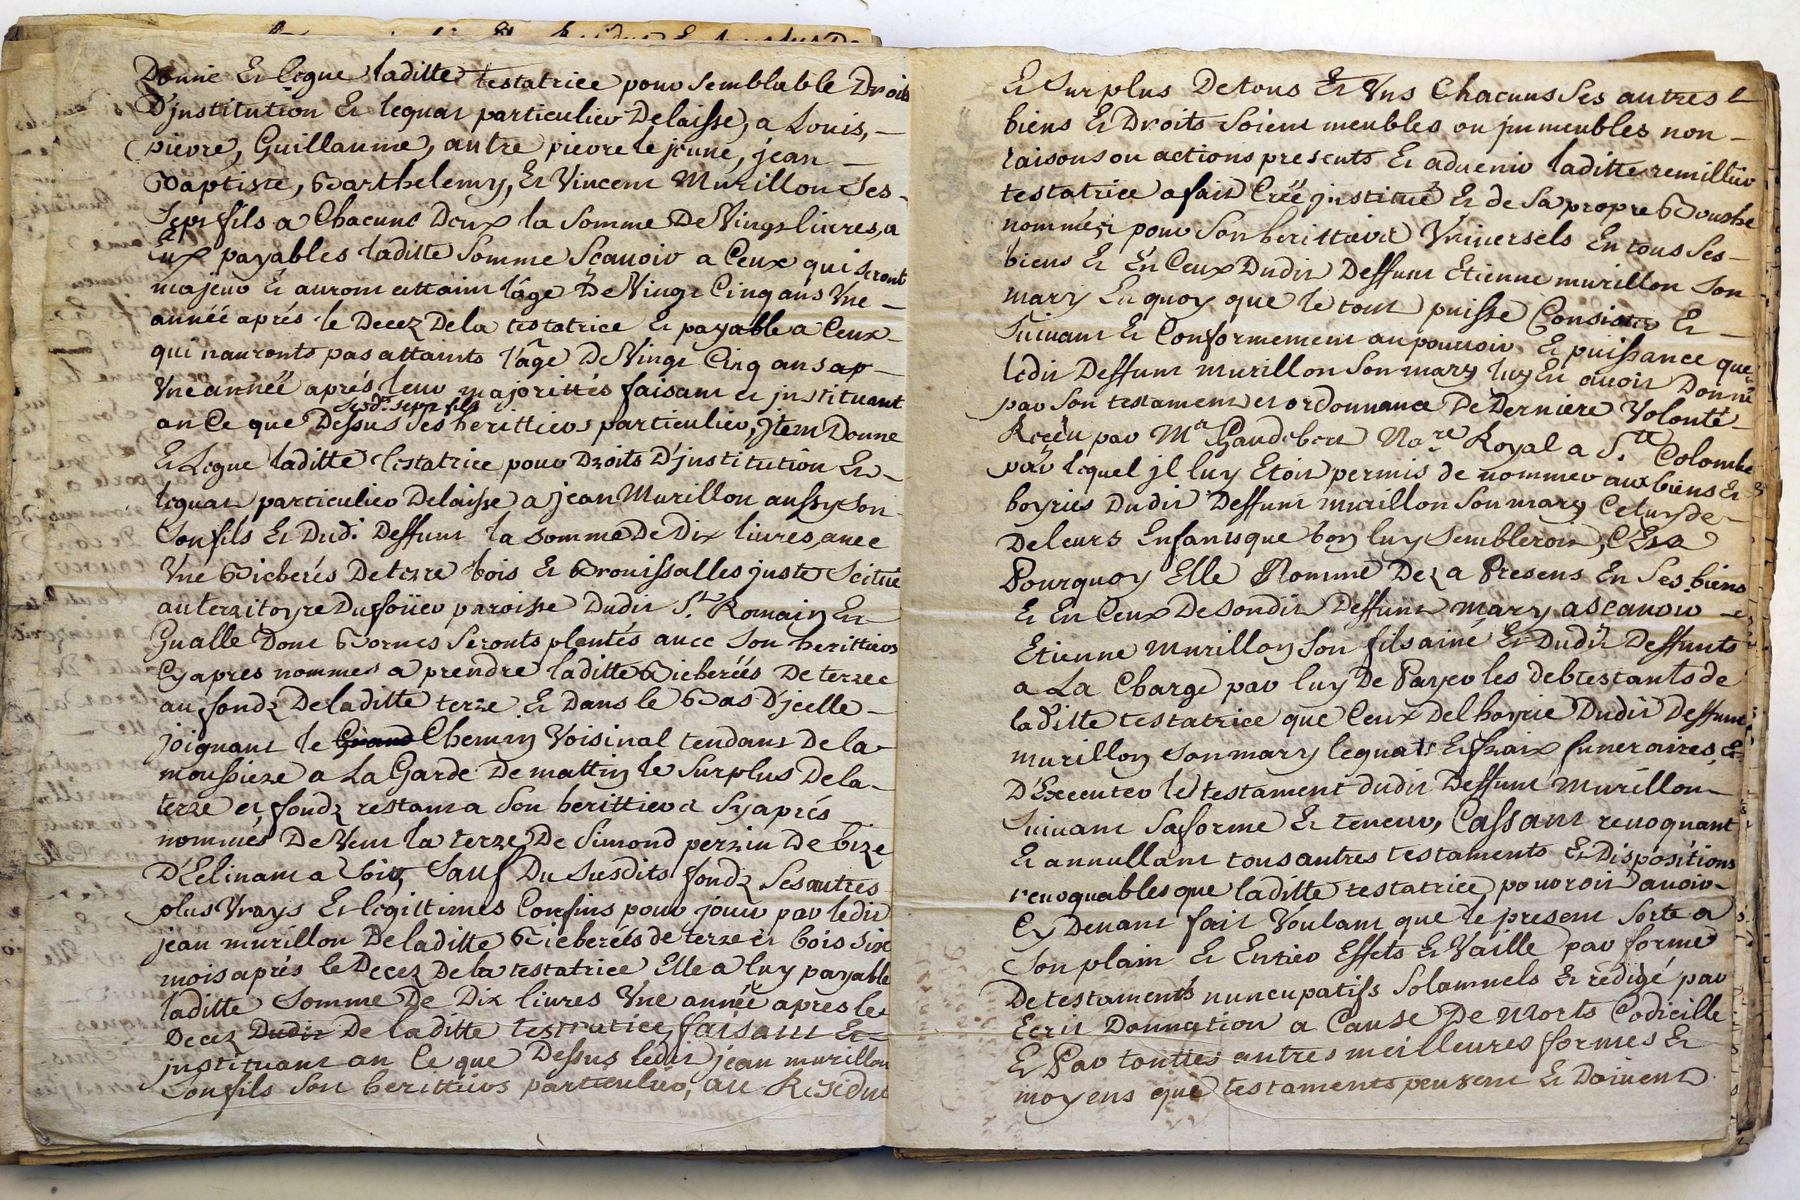 Donne Et legue laditte testatrice pour semblable Droits
D'jnstitution Et lequat particulier Delaisse, a Louis, –
pierre, Guillaume, autre pierre le jeune, jean –
Baptiste, Barthelemy, Et Vincent Murillon Ses –
Sept fils a Chacuns Deux la Somme De Vingt livres, a
Eux payables laditte Somme Scauoir a Ceux qui seront
majeur Et auront attaint lâge De Vingt Cinq ans Vne –
année aprés le Decez De la testatrice Et payable a Ceux –
qui nauronts pas attaints lâge De Vingt Cinq ans ap –
Vne année aprés leur majorittés faisant et jnstituant
sesd. sept fils
an Ce que Dessus Ses herittiers particulier, jtem Donne
Et Legue laditte testatrice pour Droits D'jnstitution Et –
lequat particulier Delaisse a jean Murillon aussy Son –
Son fils Et Dudi. Deffunt la Somme De Dix livres, auec
Vne Bicherés De terre bois Et Brouissalles juste Scitue
au territoyre Du foüer paroisse Dudit St. Romain En –
Gualle Dont Bornes Seronts plantés auec Son herittiers
Cy apres nommes a prendre laditte Bicherées De terre
au fondz De laditte terre Et Dans le Bas D'jcelle –
joignant le Grand Chemin Voisinal tendant De la –
moussiere a La Garde De mattin le Surplus De la –
terre et fondz restant a Son herittier Cyaprés
nommés De Vent la terre De Simond perrin De bize
D'Elinam a Soir, Sauf Du Susdits fondz Ses autres
plus Vrays Et legittimes Confins pour jouir par ledit
jean murillon De laditte Bicherées de terre et bois Six
mois aprés le Decez De la testatrice Elle a luy payable
laditte Somme De Dix livres Vne année apres le
Decez Dudit De laditte testratice, faisant Et –
jnstituant an Ce que Dessus ledit jean murillon
Son fils Son herittiers particulier, au Residue
Et Surplus De tous Et Vns Chacuns Ses autres
biens Et Droits Soient meubles ou jmmeubles non –
raisons ou actions presents Et aduenir laditte remillier
testatrice a fait Créé jnstitué Et de Sa propre Boushe
nommés pour Son herittiers Vniversels En tous Ses –
biens Et En Ceux Dudit Deffunt Etienne murillon Son
mary En quoy que le tout puisse Consister Et –
Suivant Et Conformement au pouuoir Et puissance que
ledit Deffunt murillon Son mary luy En auoit Donné
par Son testament et ordonnance De Derniere Volonté –
Reçeu par Mr Gaudebert Nore Royal a Ste Colombe
par lequel jl luy Etoit permis de nommer aux biens Et
hoyries Dudit Deffunt murillon Son mary Celuy de –
De leurs Enfants que bon luy Sembleroit, C'Est
Pourquoy Elle Nomme Dez a Presens En Ses biens
Et En Ceux De Sondit Deffunt mary a Scauoir –
Etienne Murillon Son fils ainé Et Dudit Deffunts
a La Charge par luy De Payer les debtes tants de
laditte testatrice que Ceux De l hoyrie Dudit Deffunt
murillon Son mary lequats Et fraix funeraires, Et –
D'Executer le testament dudit Deffunt Murillon –
Suivant Sa forme Et teneur, Cassant reuoquant
Et annullant tous autres testaments Et Dispositions
reuoquables que laditte testatrice pouroit auoir –
Cy Deuant fait Voulant que le present Sorte a
Son plain Et Entier Effets Et Vaille par forme
De testaments nuncupatifs Solamnels Et redigé par
Ecrit Donnation a Cause De Morts Codicille
Et Par touttes autres meilleures formes Et
moyens que testaments peuvent Et Doivent